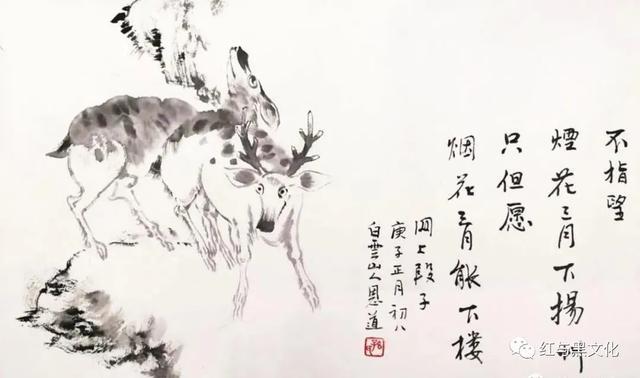 不指望
煙花三月下揚州
只但愿
烟花三月能下楼
网上段子
庚子正月初八
白雲山人恩道
红与黑文化